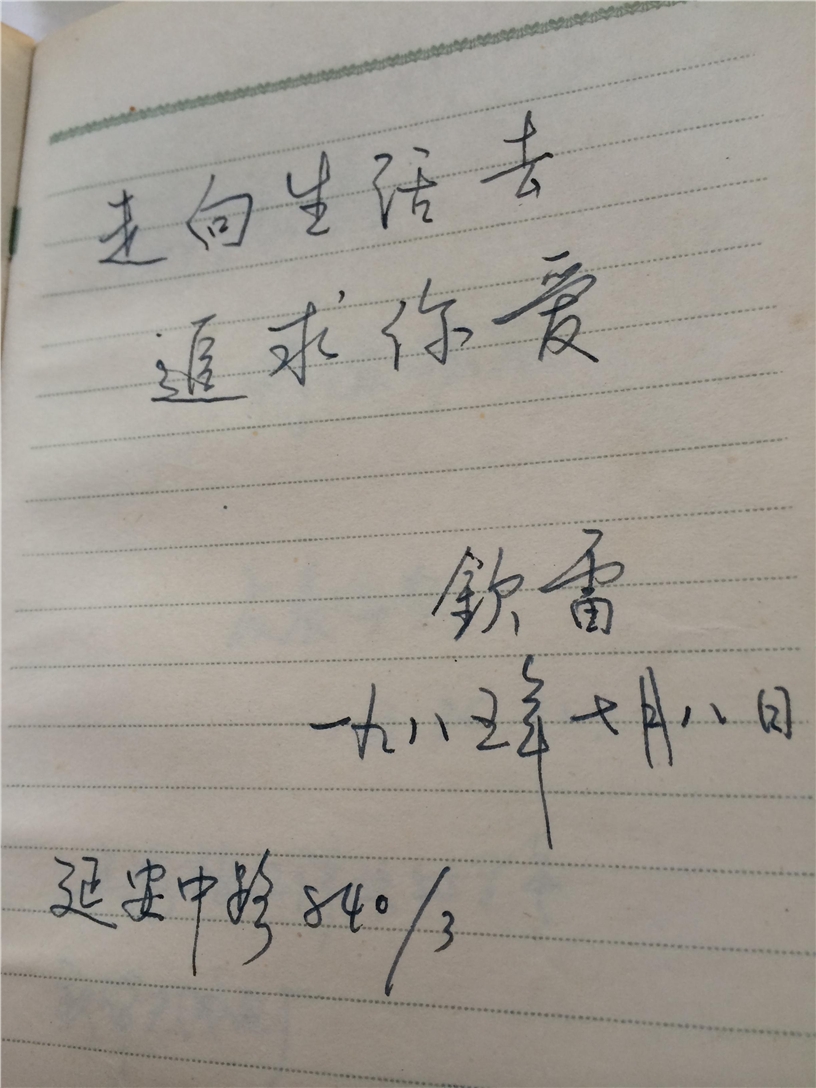 走向生活去
追求你爱
钦雷
一九八五年七月八日
延安中路840/3